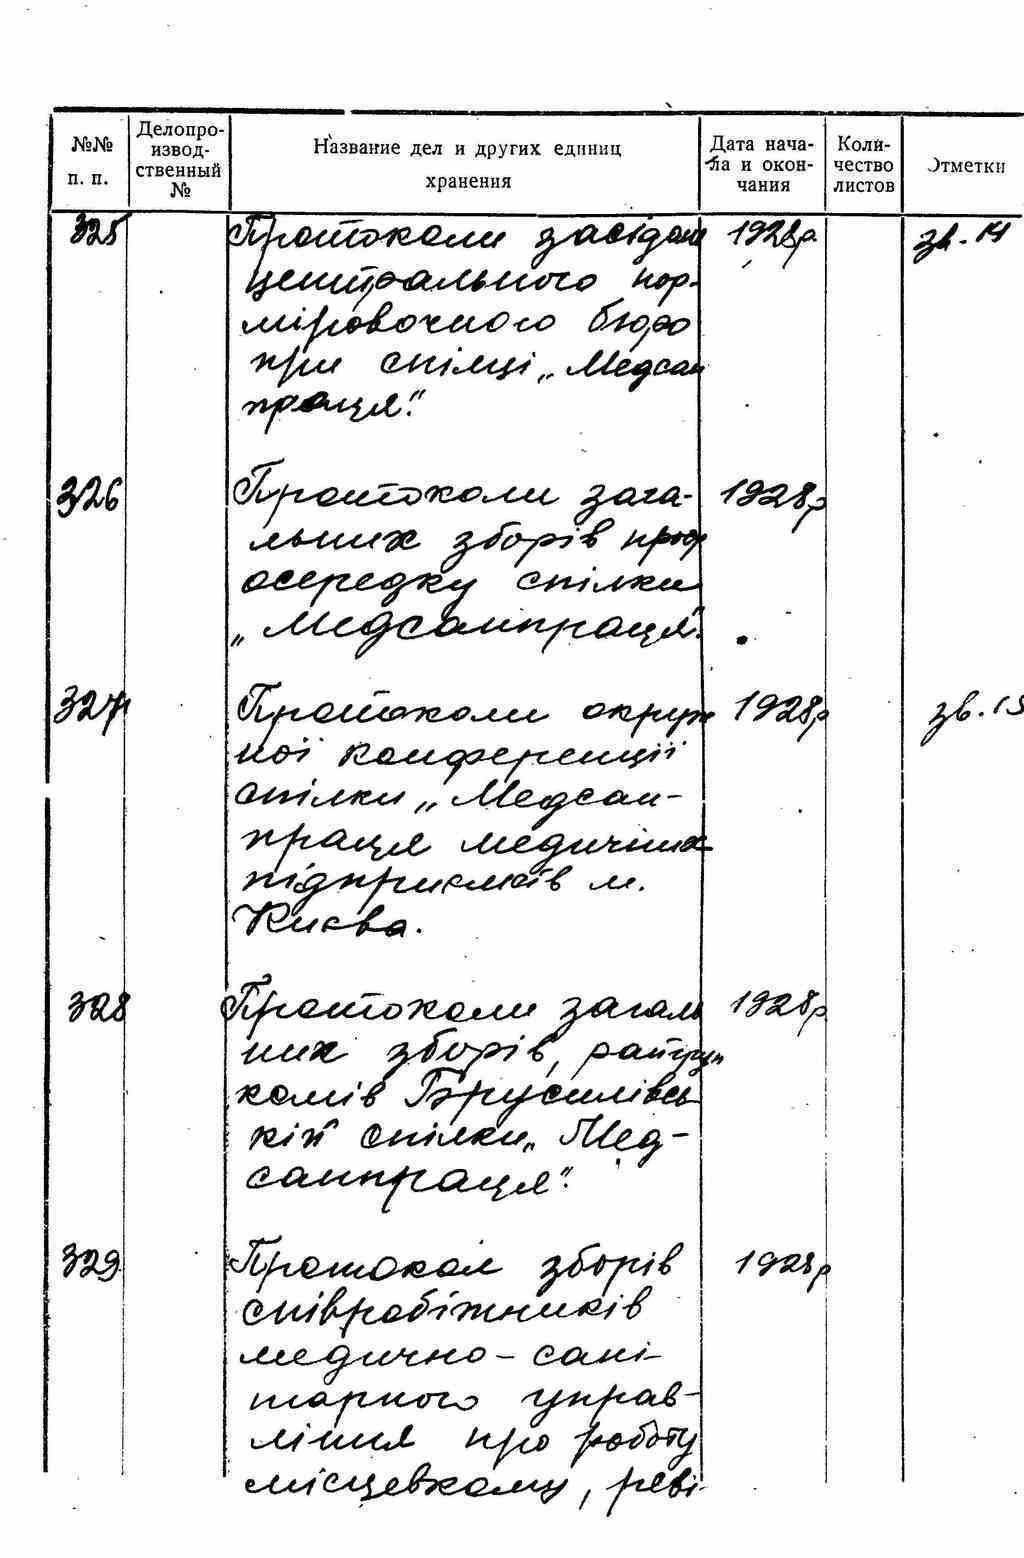 №№ п. п.
Делопро-
извод-
ственный
№
Название дел и других единиц
хранения
Дата нача-
ла и окон-
чания
Коли-
чество
листов
Отметки
325 Протоколи засідань 1928р. зв. 14
центрального нор-
міровочного бюро
при спілці „Медсан
праця".
326 Протоколи зага- 1928р
льних зборів проф
осередку спілки
„Медсанпраця".
327 Протоколи окруж 1928р зв. 15
ної конференції
спілки „Медсан-
праця медичних
підприємств м.
Києва.
328 Протоколи загаль 1928р
них зборів,
комів Брусилівсь
кій спілки „Мед-
санпраця".
329 Протокол зборів 1928р
співробітників
медично-сані-
тарного управ-
ління про роботу
місцевкому, реві-